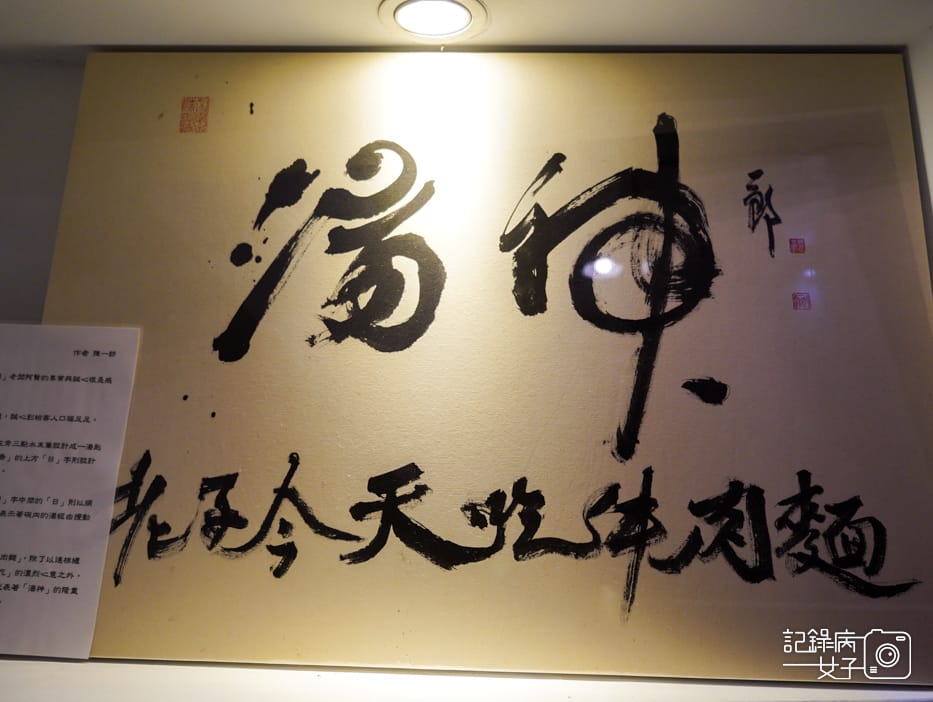 湯神
一郎
老子今天吃牛肉麵
作者 陳一郎
」老闆阿賢的專業與誠心很是感
，誠心到被客人口福足足。
左旁三點水末筆設計成一湯匙
」的上方「日」字則設計
」字中間的「日」則以順
表示著碗內的湯經由攪動
肉麵」，除了以連核縫
」的濃烈心意之外，
代表著「湯神」的隆重
記錄病
女子